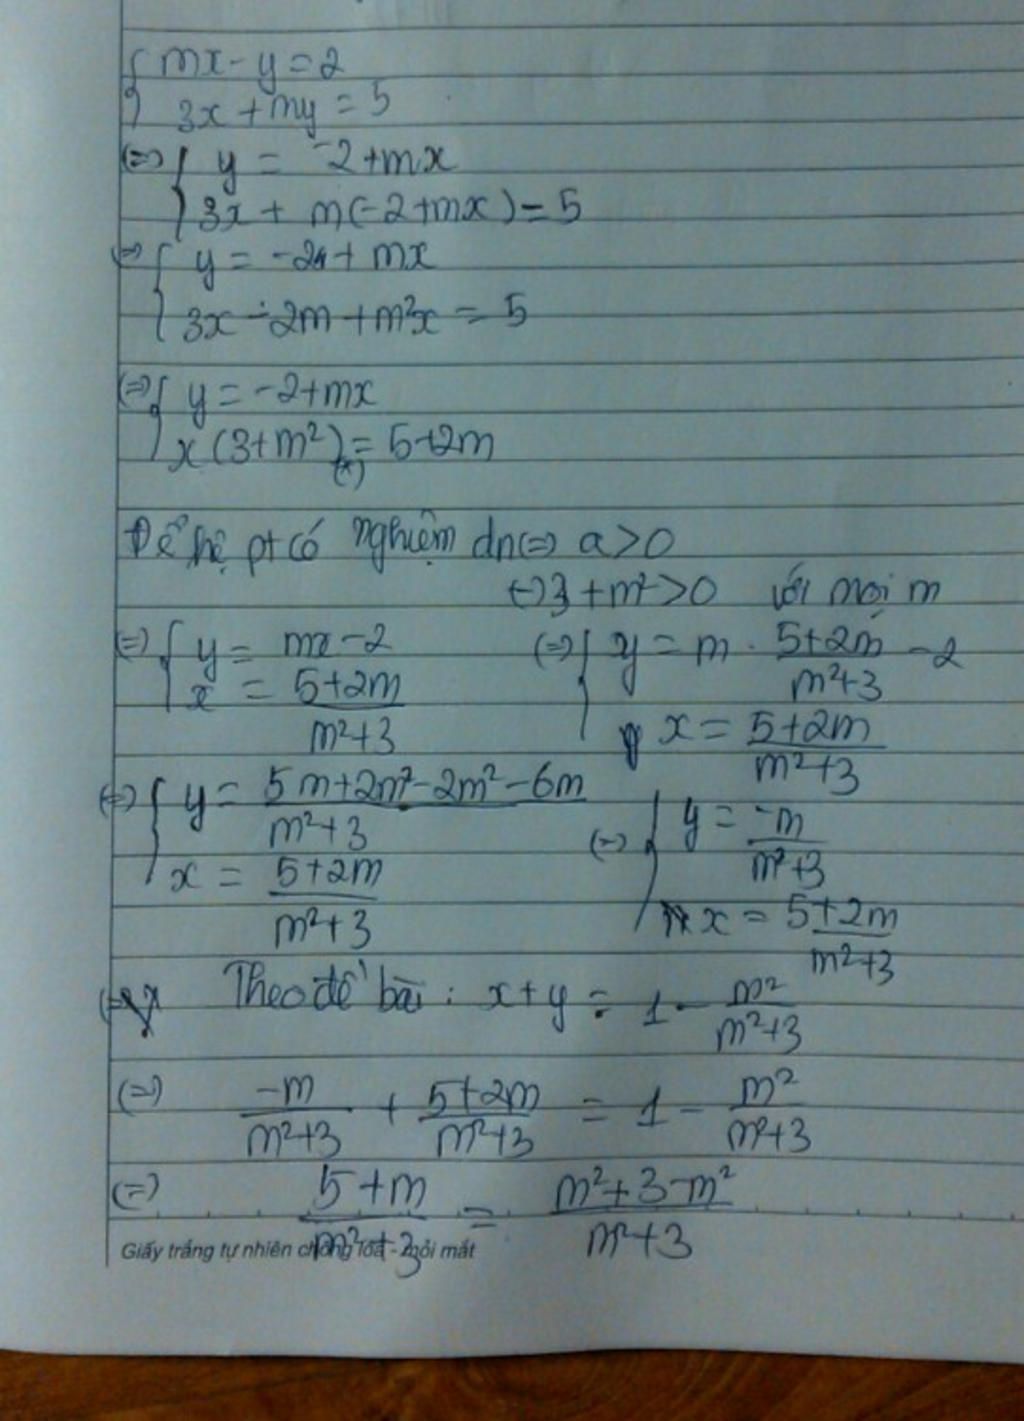 { mx - y = 2
3x + my = 5
(=) { y = -2 + mx
3x + m(-2 + mx) = 5
(=) { y = -2 + mx
3x - 2m + m²x = 5
(=) { y = -2 + mx
x (3 + m²) = 5 + 2m
(*)
Để hệ pt có nghiệm dn (=) a > 0
(=) 3 + m² > 0 với mọi m
(=) { y = mx - 2 (=) { y = m . (5+2m)/(m²+3) - 2
x = (5+2m)/(m²+3) x = (5+2m)/(m²+3)
(=) { y = (5m+2m²-2m²-6m)/(m²+3) (=) { y = (-m)/(m²+3)
x = (5+2m)/(m²+3) x = (5+2m)/(m²+3)
Theo đề bài : x + y = 1 - m²/(m²+3)
(=) (-m)/(m²+3) + (5+2m)/(m²+3) = 1 - m²/(m²+3)
(=) (5+m)/(m²+3) = (m²+3-m²)/(m²+3)
Giấy trắng tự nhiên chống lóa - mỏi mắt